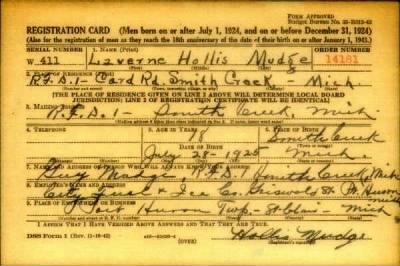 Form Approved
Budget Bureau No.
REGISTRATION CARD (Men born on or after July 1, 1924, and on or before December 31, 1924)
(Also for the registration of men as they reach the 18th anniversary of the date of their birth on or after January 1, 1925.)
SERIAL NUMBER
1. NAME (Print)
ORDER NUMBER
W 411
Laverne Hollis Mudge
14181
2. PLACE OF RESIDENCE (Print)
R.F.D. 1 - Card Rd. Smith Creek - Mich
(Number and street) (Town, township, village, or city) (County) (State)
[THE PLACE OF RESIDENCE GIVEN ON LINE 2 ABOVE WILL DETERMINE LOCAL BOARD
JURISDICTION; LINE 2 OF REGISTRATION CERTIFICATE WILL BE IDENTICAL]
3. MAILING ADDRESS
R.F.D. 1 - Smith Creek, Mich
4. TELEPHONE
5. AGE IN YEARS
6. PLACE OF BIRTH
18
Smith Creek
DATE OF BIRTH
July 28 - 1925
Mich.
7. NAME AND ADDRESS OF PERSON WHO WILL ALWAYS KNOW YOUR ADDRESS
Mudge, R.F.D. 1 Smith Creek, Mich
8. EMPLOYER'S NAME AND ADDRESS
& Ice Co. Griswold St Pt. Huron
Mich
9. PLACE OF EMPLOYMENT OR BUSINESS
Port Huron Twp - St Clair - Mich
I AFFIRM THAT I HAVE VERIFIED ABOVE ANSWERS AND THAT THEY ARE TRUE.
DSS Form 1
(OVER)
Hollis Mudge
(Registrant's signature)